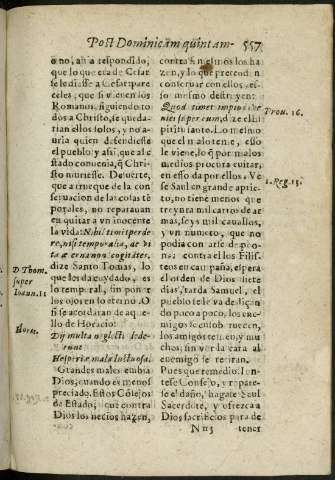 Post Dominicam quintam- 557
o no, auia respondido,
que lo que era de Cesar
se le diesse a Cesar pare
celes; que si vienen los
Romanos, siguiendo to
dos a Christo, se queda-
rian ellos solos, y no a-
uria quien defendiesse
el pueblo: y assi, que al e
stado conuenia, q̃ Chri
sto muriesse. De suerte,
que a trueque de la con
seruacion de las cosas tẽ
porales, no repararon
en quitar a vn inocente
la vida: Nihil timet perde
re, nisi temporalia, ac vi
tæ æternæ non cogitates.
dize Santo Tomas, lo
que los da cuydado, es
lo temporal, sin poner
los ojos en lo eterno. O
si se acordaran de aque-
llo de Horacio:
Dij multa neglecti dede-
runt
Hesperiæ mala luctuosæ.
Grandes males embia
Dios, quando es menos
preciado. Estos Cõsejos
de Estado, que contra
Dios los necios hazen,
D. Thom.
super
Ioann. 11
Horat.
contra si mesmos los ha
zen, y lo que pretenden
conseruar con ellos, es-
so mismo destruyen:
Quod timet impius, ve
niet super eum, dize el Es
piritu santo. Lo mesmo
que el malo teme, esso
le viene, lo q̃ por malos
medios procura euitar,
en esso da por ellos. Ve
se Saul en grande aprie-
to, no tiene menos que
treynta mil carros de ar
mas, seys mil cauallos,
y vn numero, que no
podia contarse de peo-
nes: contra el los Filis-
teos en campaña, espera
el orden de Dios siete
dias, tarda Samuel, el
pueblo se le va deslizan
do poco a poco, los ene-
migos se embrauecen,
los amigos temen, y mu
chos, sin ver la cara al
enemigo se retiran.
Pues que remedio? Iun-
tese Consejo, y repare-
se el daño, hagase Saul
Sacerdote, y ofrezca a
Dios sacrificios para de
Prou. 16.
1. Reg. 13.
Nn 5 tener